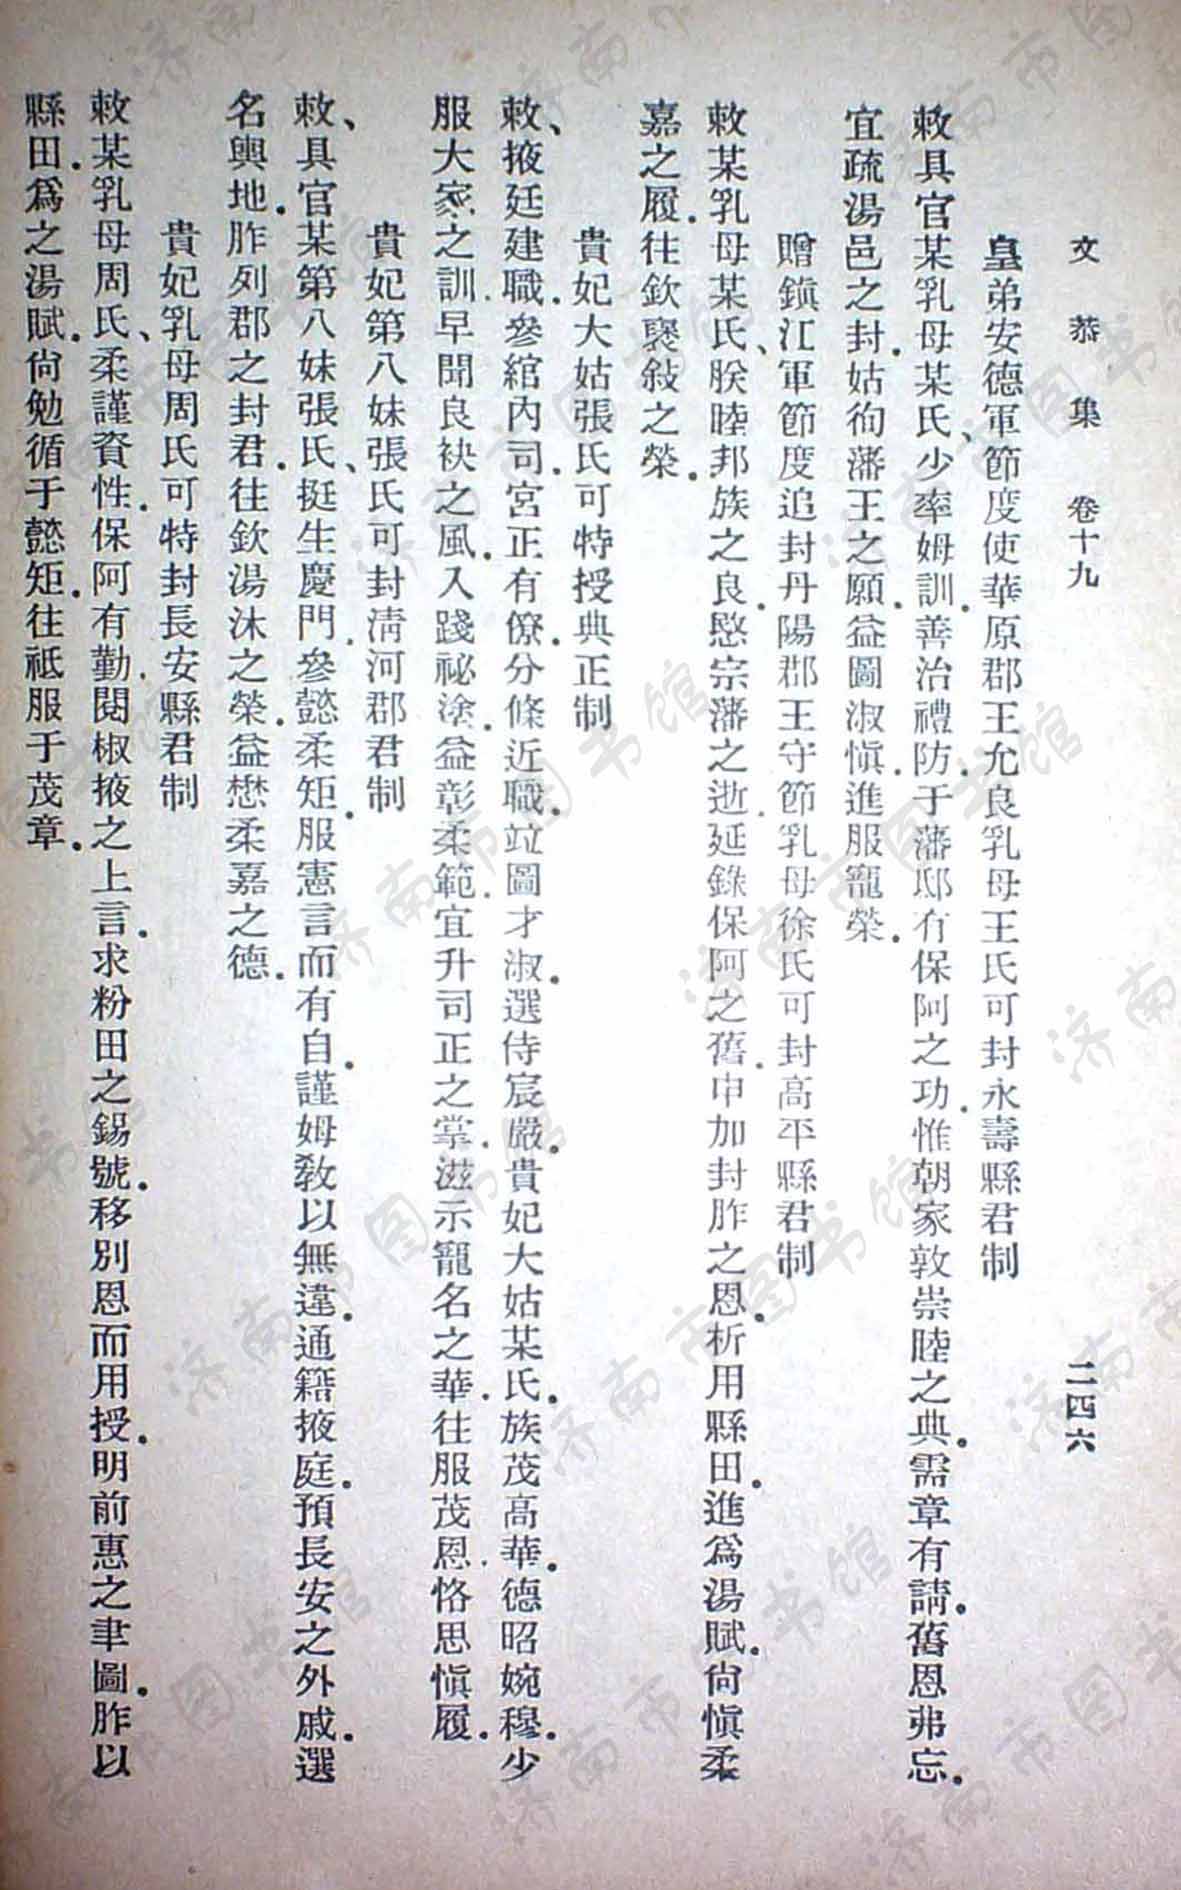 文恭集 卷十九 二四六
皇弟安德軍節度使華原郡王允良乳母王氏可封永壽縣君制
敕具官某乳母某氏、少率姆訓．善治禮防．于藩邸有保阿之功．惟朝家敦崇睦之典．需章有請．舊恩弗忘．
宜疏湯邑之封．姑徇藩王之願．益圖淑愼．進服寵榮．
贈鎭江軍節度追封丹陽郡王守節乳母徐氏可封高平縣君制
敕某乳母某氏、朕睦邦族之良．愍宗藩之逝．延錄保阿之舊．申加封胙之恩．析用縣田．進爲湯賦．尙愼柔
嘉之履．往欽褒敍之榮．
貴妃大姑張氏可特授典正制
敕、掖廷建職．參綰內司．宮正有僚．分條近職．竝圖才淑．選侍宸嚴．貴妃大姑某氏．族茂高華．德昭婉穆．少
服大家之訓．早聞良袂之風．入踐祕塗．益彰柔範．宜升司正之掌．滋示寵名之華．往服茂恩．恪思愼履．
貴妃第八妹張氏可封淸河郡君制
敕、具官某第八妹張氏、挺生慶門．參懿柔矩．服憲言而有自．謹姆敎以無違．通籍掖庭．預長安之外戚．選
名輿地．胙列郡之封君．往欽湯沐之榮．益懋柔嘉之德．
貴妃乳母周氏可特封長安縣君制
敕某乳母周氏、柔謹資性．保阿有勤．閱椒掖之上言．求粉田之錫號．移別恩而用授．明前惠之聿圖．胙以
縣田．爲之湯賦．尙勉循于懿矩．往祗服于茂章．
济南市图书馆